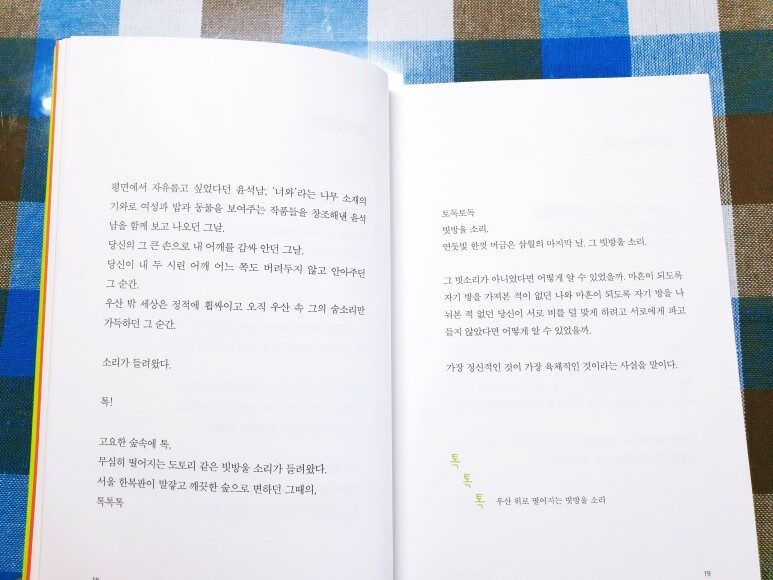 평면에서 자유롭고 싶었다던 윤석남. '너와'라는 나무 소재의
기와로 여성과 밥과 동물을 보여주는 작품들을 창조해낸 윤석
남을 함께 보고 나오던 그날.
당신의 그 큰 손으로 내 어깨를 감싸 안던 그날.
당신이 내 두 시린 어깨 어느 쪽도 버려두지 않고 안아주던
그 순간.
우산 밖 세상은 정적에 휩싸이고 오직 우산 속 그의 숨소리만
가득하던 그 순간.
소리가 들려왔다.
톡!
고요한 숲속에 톡,
무심히 떨어지는 도토리 같은 빗방울 소리가 들려왔다.
서울 한복판이 말갛고 깨끗한 숲으로 변하던 그때의,
톡톡톡
18
토독토독
빗방울 소리.
연둣빛 한껏 머금은 삼월의 마지막 날, 그 빗방울 소리.
그 빗소리가 아니었다면 어떻게 알 수 있었을까. 마흔이 되도록
자기 방을 가져본 적이 없던 나와 마흔이 되도록 자기 방을 나
눠본 적 없던 당신이 서로 비를 덜 맞게 하려고 서로에게 파고
들지 않았다면 어떻게 알 수 있었을까.
가장 정신적인 것이 가장 육체적인 것이라는 사실을 말이다.
톡
톡
톡 우산 위로 떨어지는 빗방울 소리
19